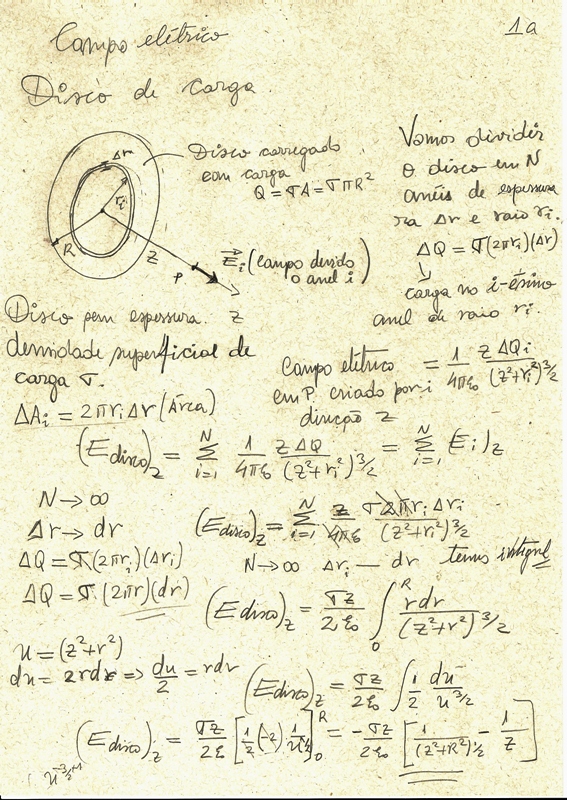 1a
Campo elétrico
Disco de carga
Δr
ri
R
Z
P
Z
Disco carregado
com carga
Q = σA = σπR²
E⃗i (campo devido
o anel i)
Vamos dividir
o disco em N
anéis de espessura
ra Δr e raio ri.
ΔQ = σ(2πri)(Δr)
↓
carga no i-ésimo
anel de raio ri.
Disco sem espessura.
densidade superficial de
carga σ.
ΔAi = 2πriΔr (Área)
Campo elétrico = 1/4πε₀ zΔQi/(z²+ri²)^3/2
em P, criado por i
direção z
(Edisco)z = Σ_{i=1}^{N} 1/4πε₀ zΔQ/(z²+ri²)^3/2 = Σ_{i=1}^{N} (Ei)z
N → ∞
Δr → dr
ΔQ = σ(2πri)(Δri)
ΔQ = σ.(2πr)(dr)
(Edisco)z = Σ_{i=1}^{N} z/4πε₀ σ2πriΔri/(z²+ri²)^3/2
N → ∞ Δri — dr temos integral
(Edisco)z = σz/2ε₀ ∫_0^R rdr/(z²+r²)^3/2
u = (z²+r²)
du = 2rdr => du/2 = rdr
(Edisco)z = σz/2ε₀ ∫ 1/2 du/u^3/2
(Edisco)z = σz/2ε [1/2 (-2) 1/u^½]_0^R = -σz/2ε₀ [1/(z²+R²)^½ - 1/z]
u^-3/2+1